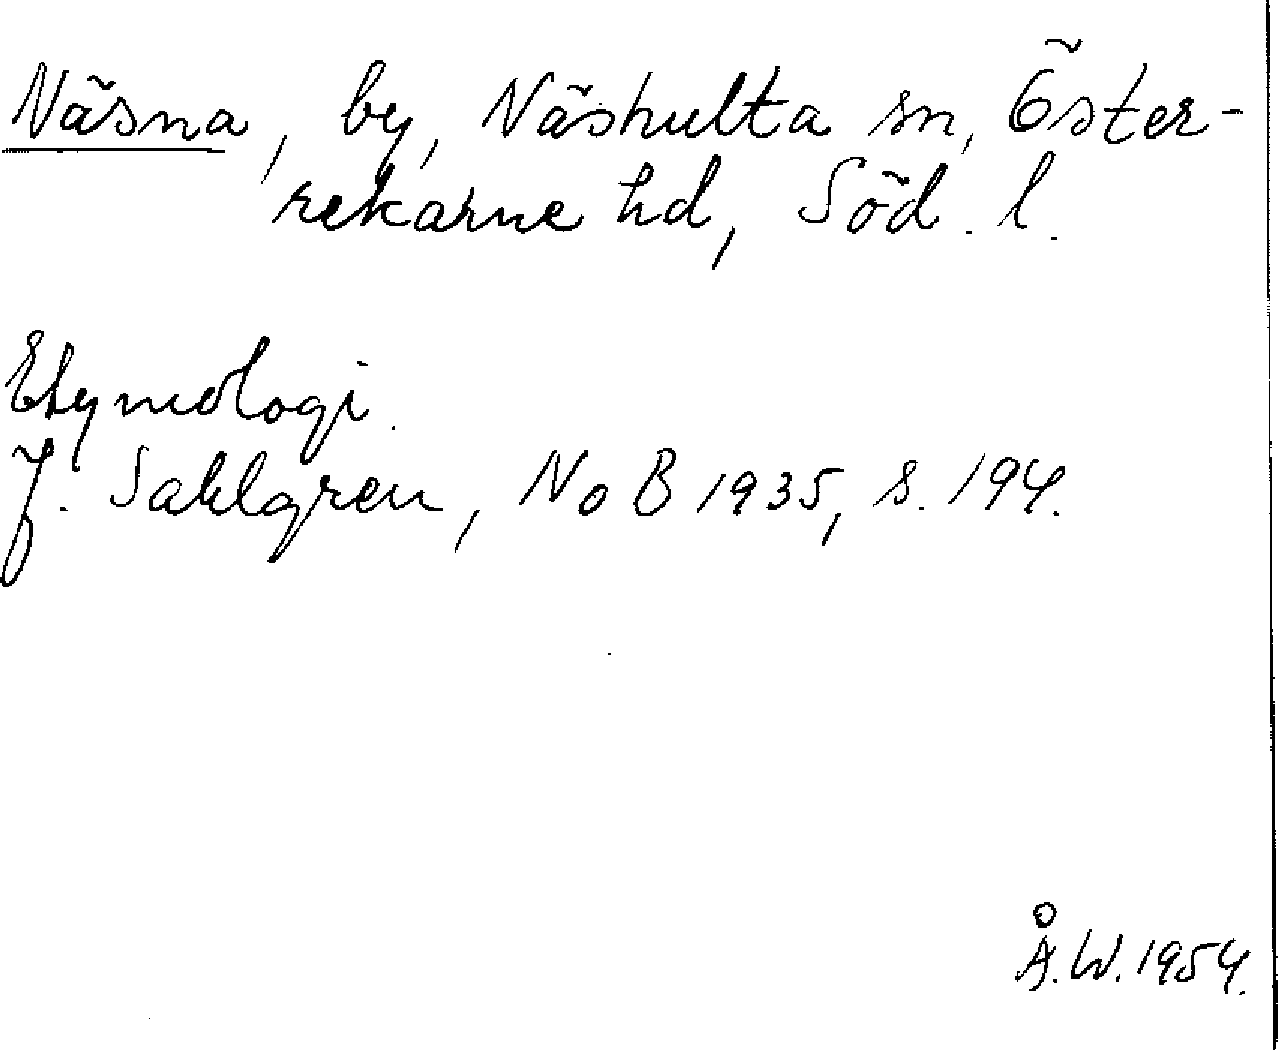 Näsna, by, Näshulta sn, Öster-
rekarne hd, Söd. l.
Etymologi.
J. Sahlgren, NoB 1935, s. 194.
Å.W. 1954.